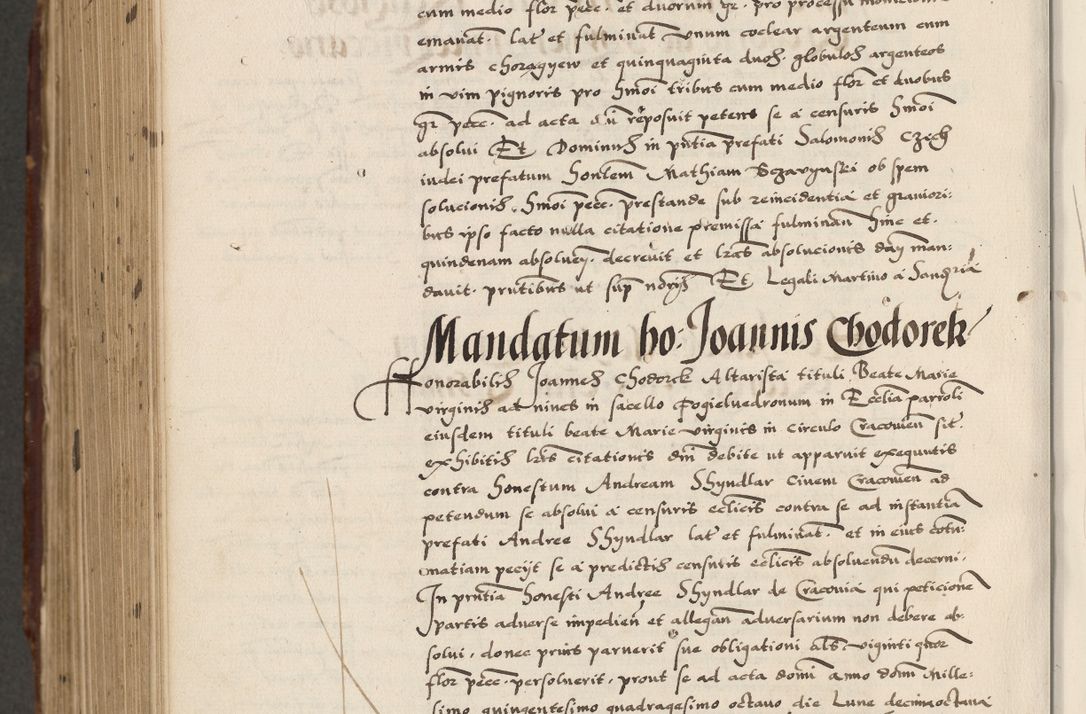 cum medio flor pecc. et duorum gr. pro processu
emanat. lat et fulminat unum coclear argenteum cum
armis chorągyew et quinquaginta duos globulos argenteos
in vim pignoris pro hmoi tribus cum medio flor et duobus
gr pecc. ad acta reposuit petens se a censuris hmoi
absolvi Et Dominus in pntia prefati Salomonis Czech
iudei prefatum honestem Mathiam ob spem
solucionis hmoi pecc. prestande sub reincidentia et graviori-
bus ipso facto nulla citatione premissa fulminan hinc et
quindenam absolven. decrevit et lras absolucionis dari man-
davit. pntibus ut sup Et Legali Martino a
Mandatum ho: Joannis Chodorek
Honorabilis Joannes Chodorek Altarista tituli Beate Marie
virginis ad nives in sacello in Ecclia parroli
eiusdem tituli beate Marie virginis in circulo Cracovien sit
exhibitis lris citationis dni debite ut apparuit exequutis
contra honestum Andream Shyndlar civem Cracovien ad
petendum se absolvi a censuris ecclicis contra se ad instantia
prefati Andree Shyndlar lat et fulminat. et in eius cotu-
matiam pecijt se a predictis censuris ecclicis absolvendu decerni.
In pntia honesti Andree Shyndlar de Cracovia qui peticione
partis adverse impedien et allegan adversarium non debere ab-
solvi. donec prius paruerit sue obligationi als viginti quor
flor pecc. persolverit. prout se ad acta domi anno domi Mille-
simo quingentesimo quadragesimo octavo die Lune decimaoctava